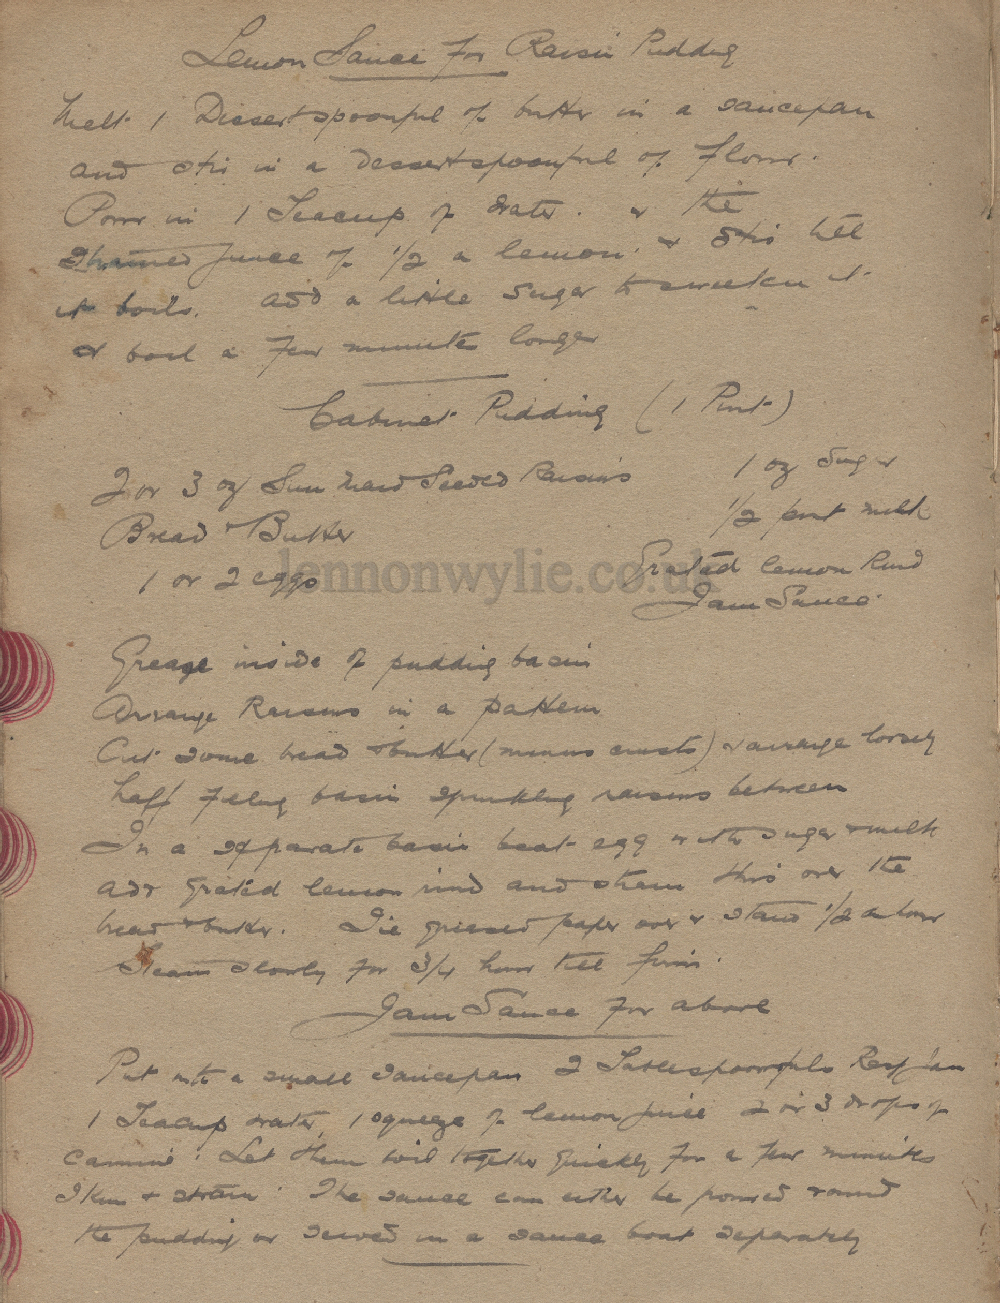 Lemon Sauce for Raisin Pudding
Melt 1 Dessertspoonful of butter in a saucepan
and stir in a dessertspoonful of flour.
Pour in 1 Teacup of water. & the
strained juice of 1/2 a lemon. & stir till
it boils. add a little sugar to sweeten it
& boil a few minutes longer
Cabinet Pudding (1 Pint)
2 or 3 oz Sun Maid Seeded Raisins
1 oz Sugar
Bread & Butter
1/2 pint milk
1 or 2 eggs
Grated lemon Rind
Jam Sauce.
lennonwylie.co.uk
Grease inside of pudding basin
Arrange Raisins in a pattern
Cut some bread & butter (minus crusts) & arrange loosely
half filling basin sprinkling raisins between
In a separate basin beat egg with sugar & milk
add grated lemon rind and strain this over the
bread & butter. Tie greased paper over & stand 1/2 an hour
Steam slowly for 3/4 hour till firm.
Jam Sauce for above
Put into a small saucepan 2 Tablespoonfuls Rasp jam
1 Teacup water, 1 squeeze of lemon juice 2 or 3 drops of
carmine. Let them boil together quickly for a few minutes
Skim & strain. The sauce can either be poured round
the pudding or served in a sauce boat separately